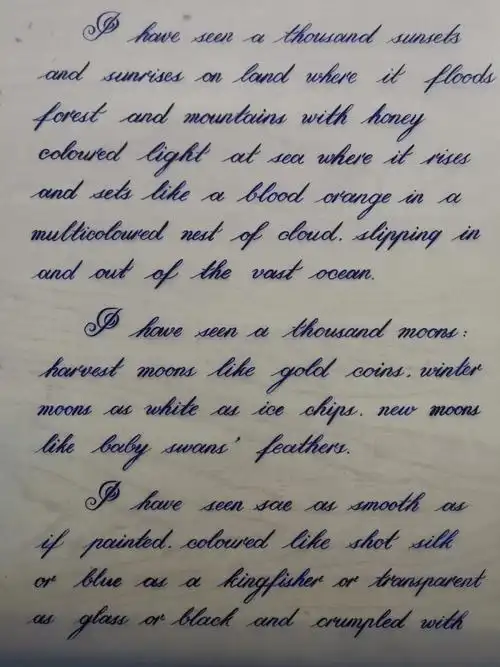 I have seen a thousand sunsets
and sunrises on land where it floods
forest and mountains with honey
coloured light at sea where it rises
and sets like a blood orange in a
multicoloured nest of cloud. slipping in
and out of the vast ocean.
I have seen a thousand moons:
harvest moons like gold coins. winter
moons as white as ice chips. new moons
like baby swans' feathers.
I have seen sae as smooth as
if painted. coloured like shot silk
or blue as a kingfisher or transparent
as glass or black and crumpled with